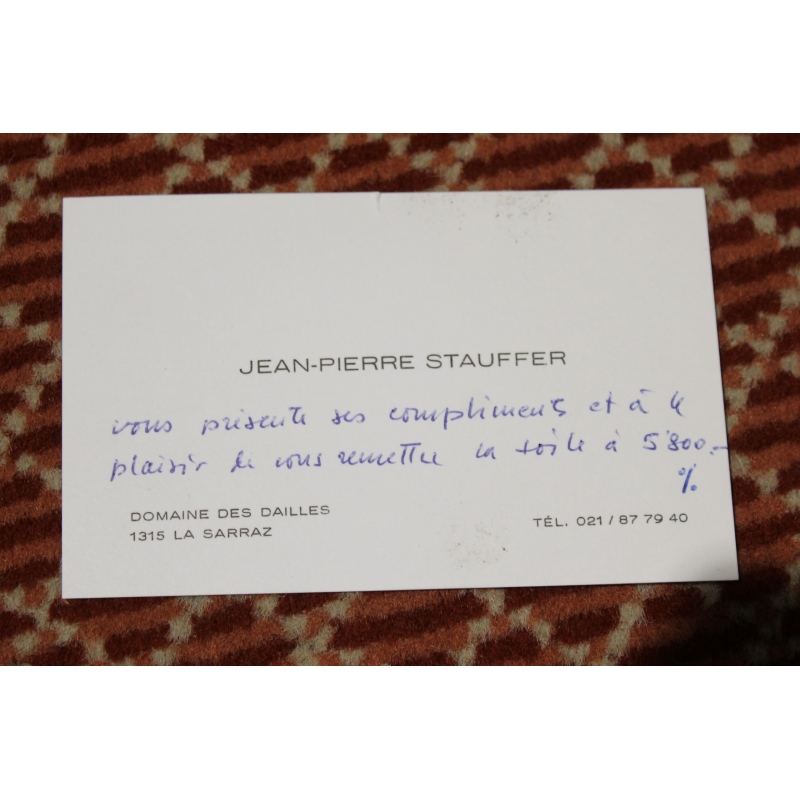 JEAN-PIERRE STAUFFER
vous présente ses compliments et a le
plaisir de vous remettre la toile à 5'800.-
%
DOMAINE DES DAILLES
1315 LA SARRAZ
TÉL. 021 / 87 79 40